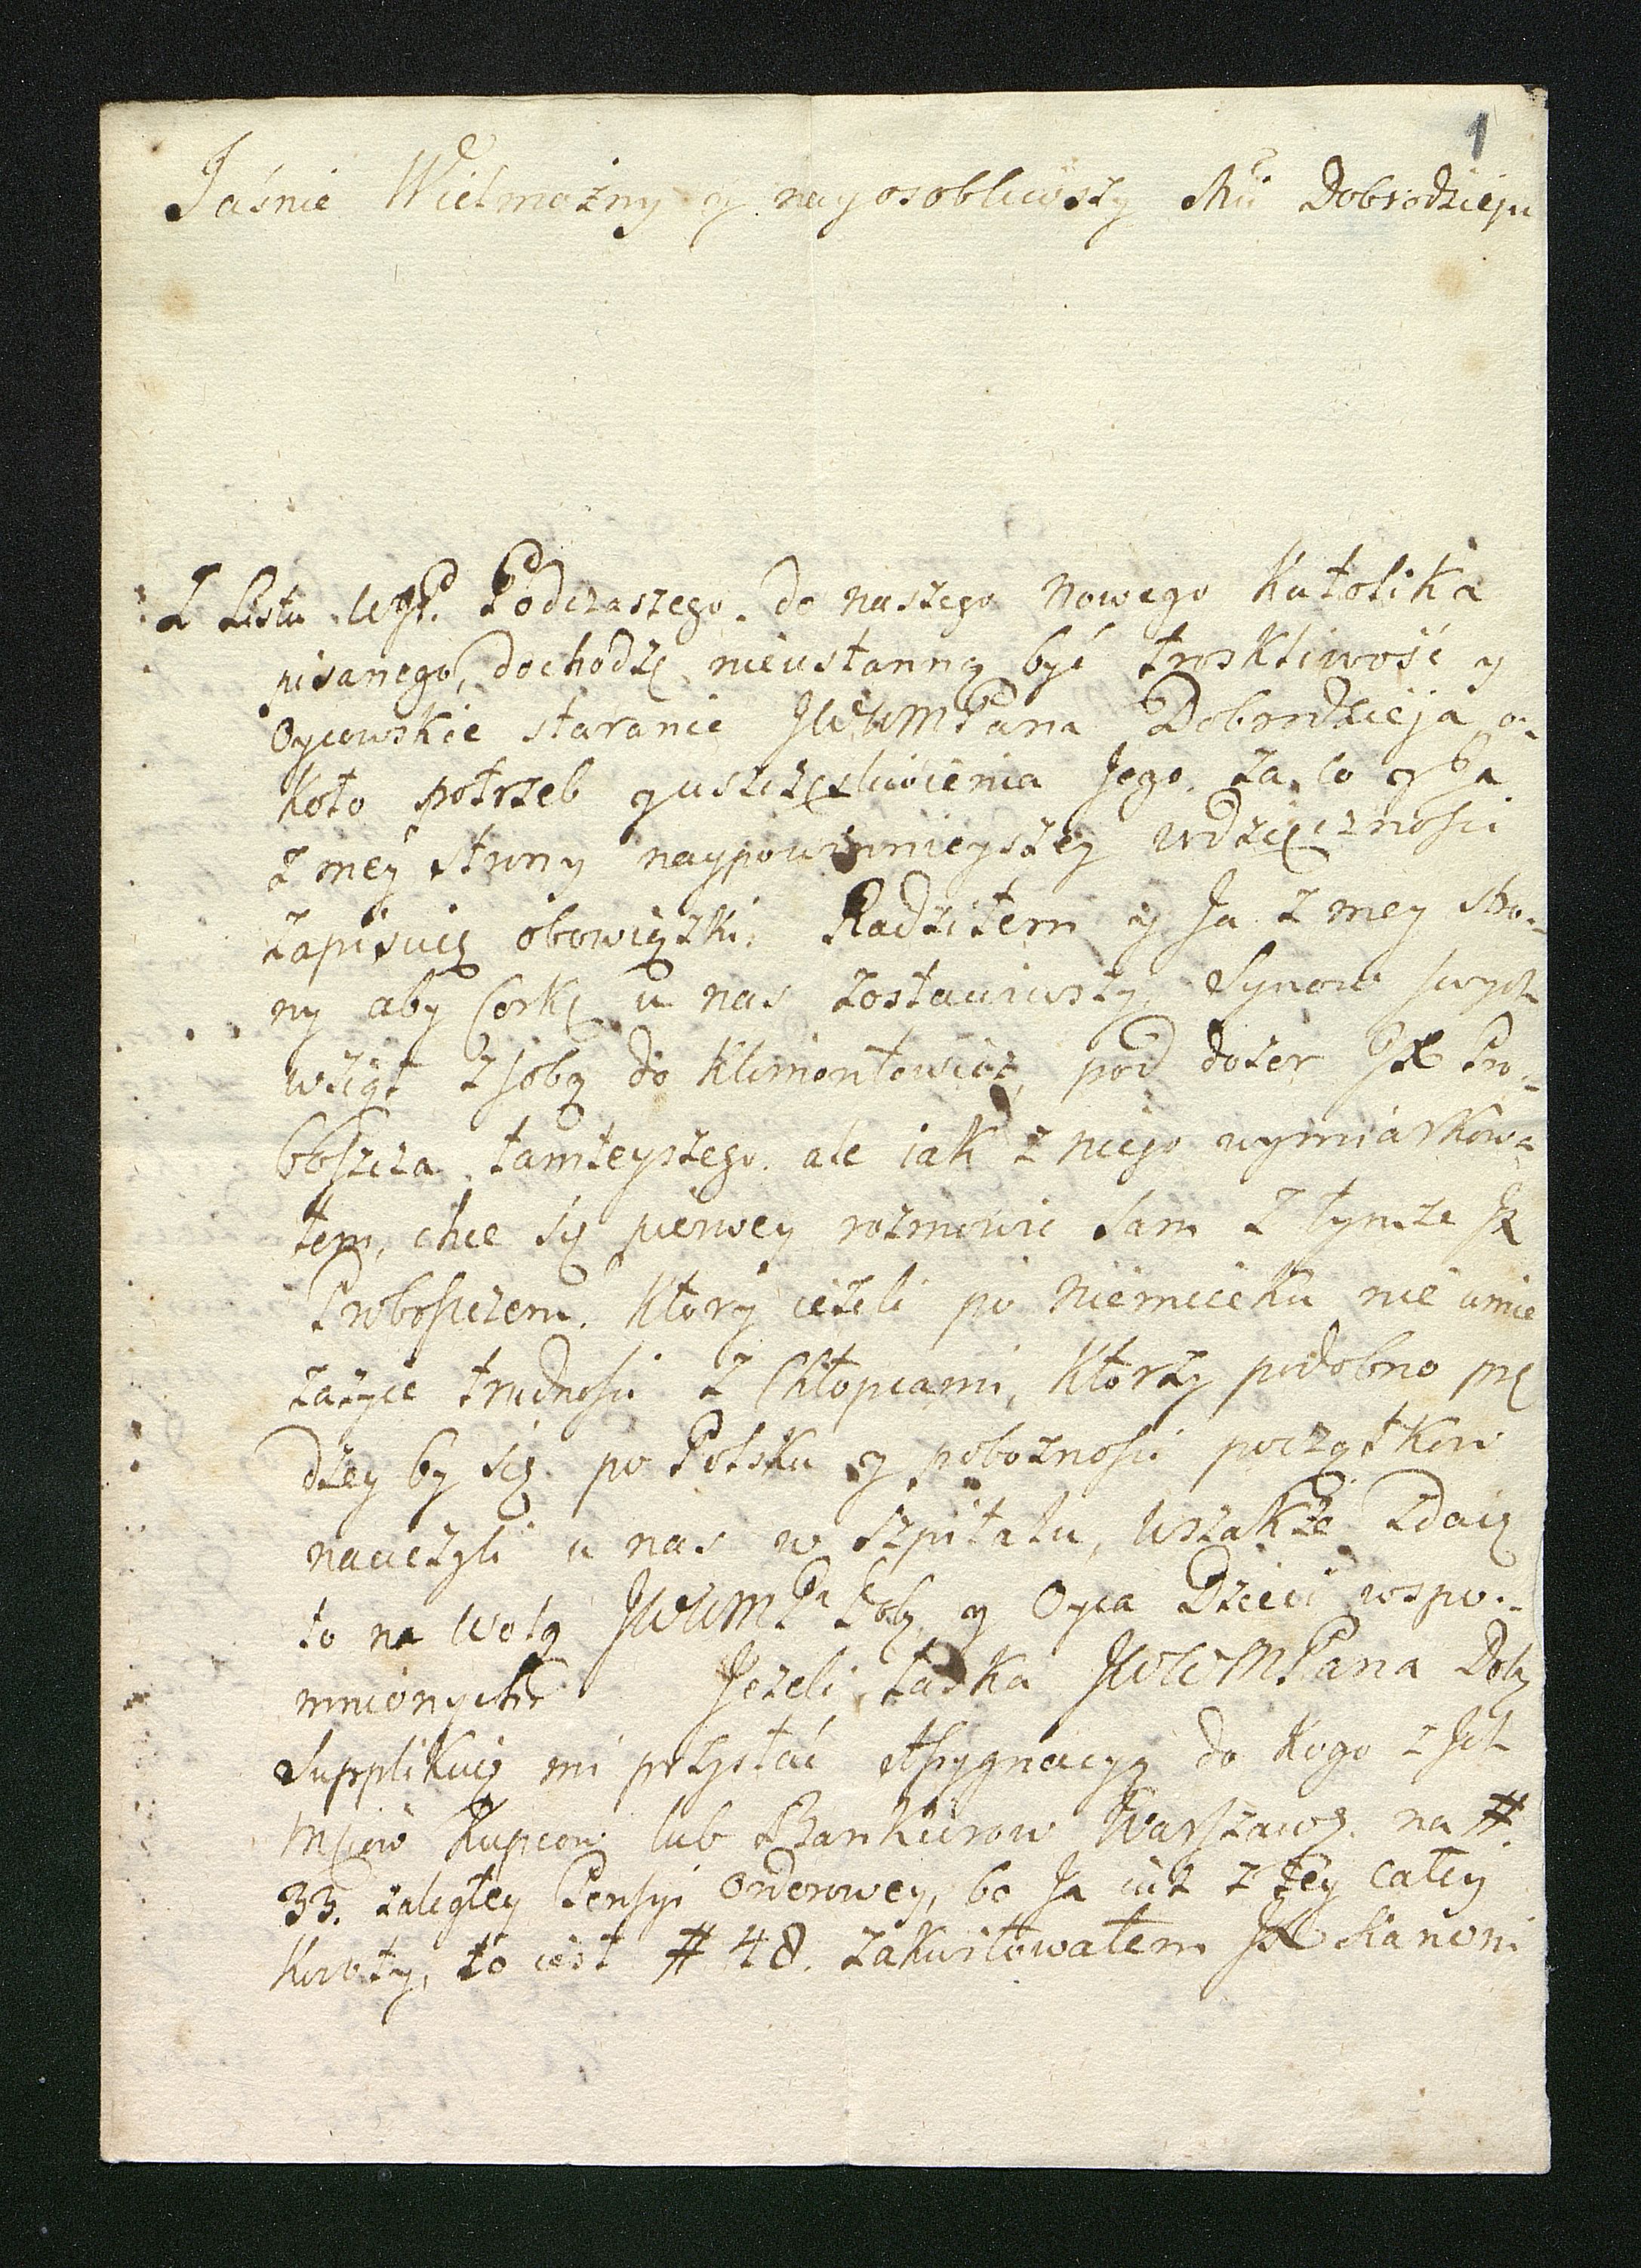 1
Jaśnie Wielmożny y nayosobliwszy Mći Dobrodzieju
Z Listu WJP. Podczaszego do naszego nowego Katolika
pisanego, dochodzę nieustanną być troskliwość y
Oycowskie staranie JWWMPana Dobrodzieja o-
koło potrzeb y uszczęsliwienia Jego, za co y Ja
z mey strony naypowinnieyszey wdzięcznosci
zapisuię obowiązki. Radziłem y Ja z mey stro-
ny aby Corkę u nas zostawiwszy, Synow swych
wziął z sobą do Klimontowicz, pod dozor JX Pro-
boszcza tamteyszego. ale iak z niego wymiarkowa
łem, chce się pierwey rozmowic sam z tymże JX
Proboszczem. Ktory ieżeli po Niemiecku nie umie
zażyie trudnosci z Chłopcami, Ktorzy podobno prę
dzey by się po Polsku y pobożnosci początkow
nauczyli u nas w Szpitalu, wszakże zdaię
to na wolą JWWMPa Dobr. y Oyca Dzieci wspo-
mnionych Jeżeli łaska JWWMPana Dobr.
Supplikuię mi przysłać Assygnacyą do Kogo z Jch
Mciow Kupcow lub Bankierow Warszaws. na #
33. zaległey Pensyi Orderowey, bo Ja iuż z tey całey
Kwoty, to iest # 48. zakwitowałem JX Kanoni